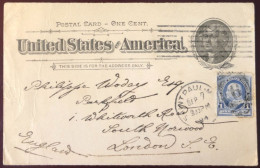 POSTAL CARD - ONE CENT.
United States of America
THIS SIDE IS FOR ADDRESS ONLY.
Philippe Esq
Parkfield
1 Whitworth Rd
South Norwood
London S.E.
England
ST. PAUL